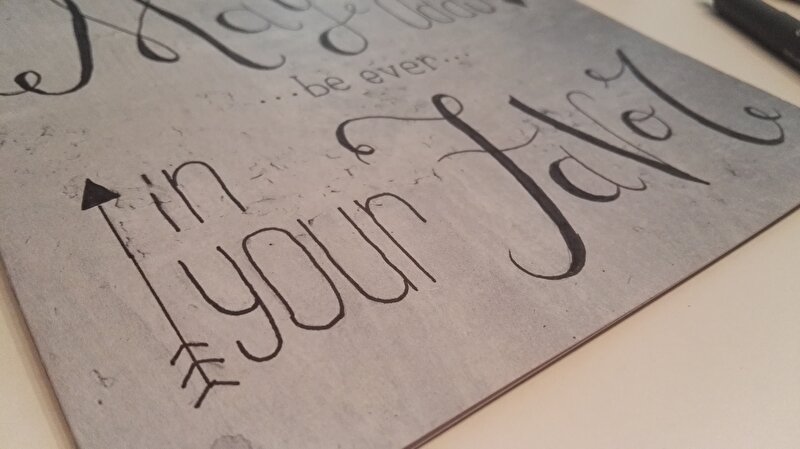 May
...be ever...
in
your Favor